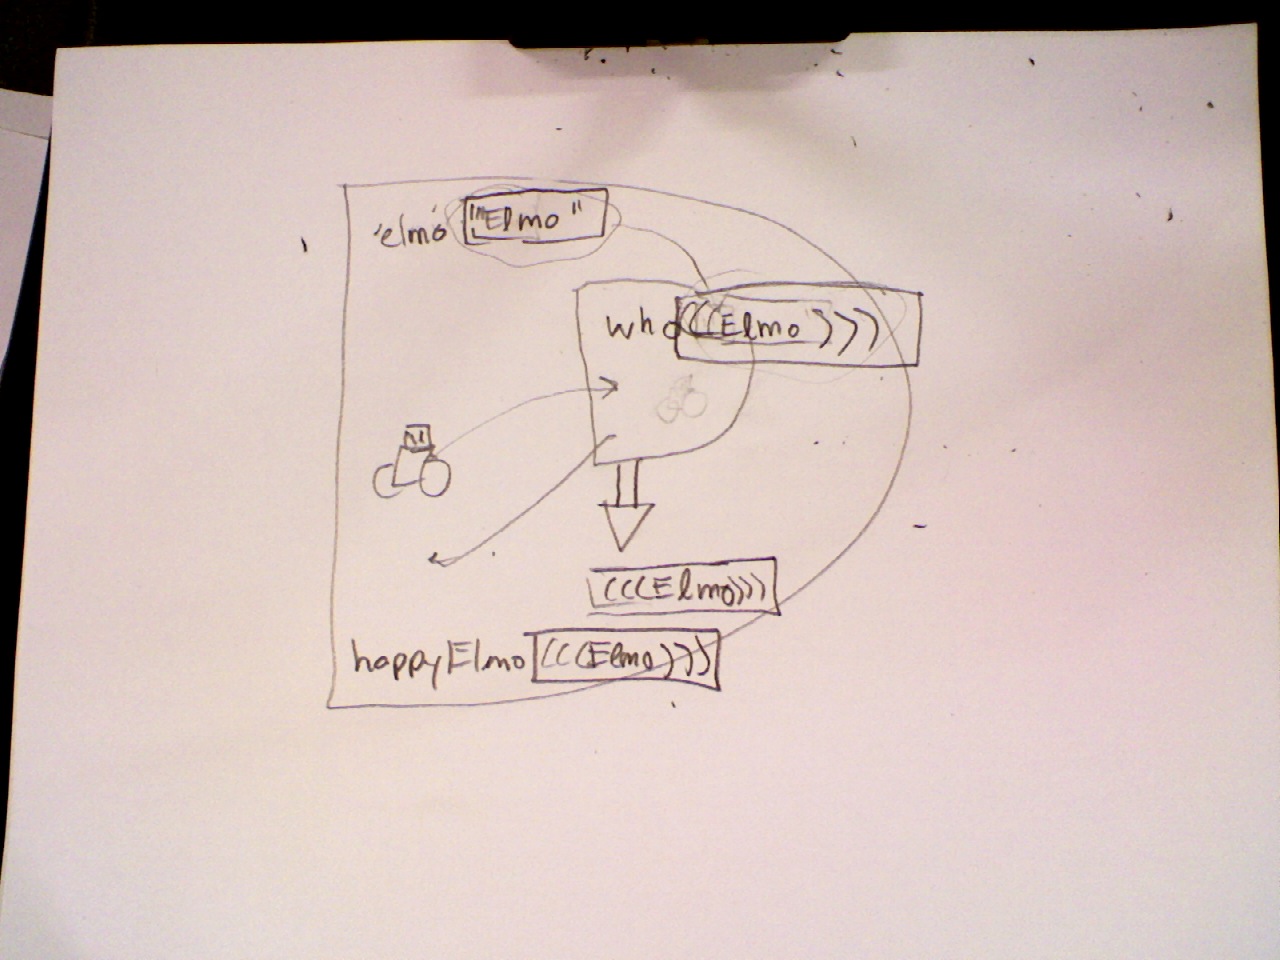 'elmo' "Elmo"
who (((Elmo)))
(((Elmo)))
happyElmo (((Elmo)))